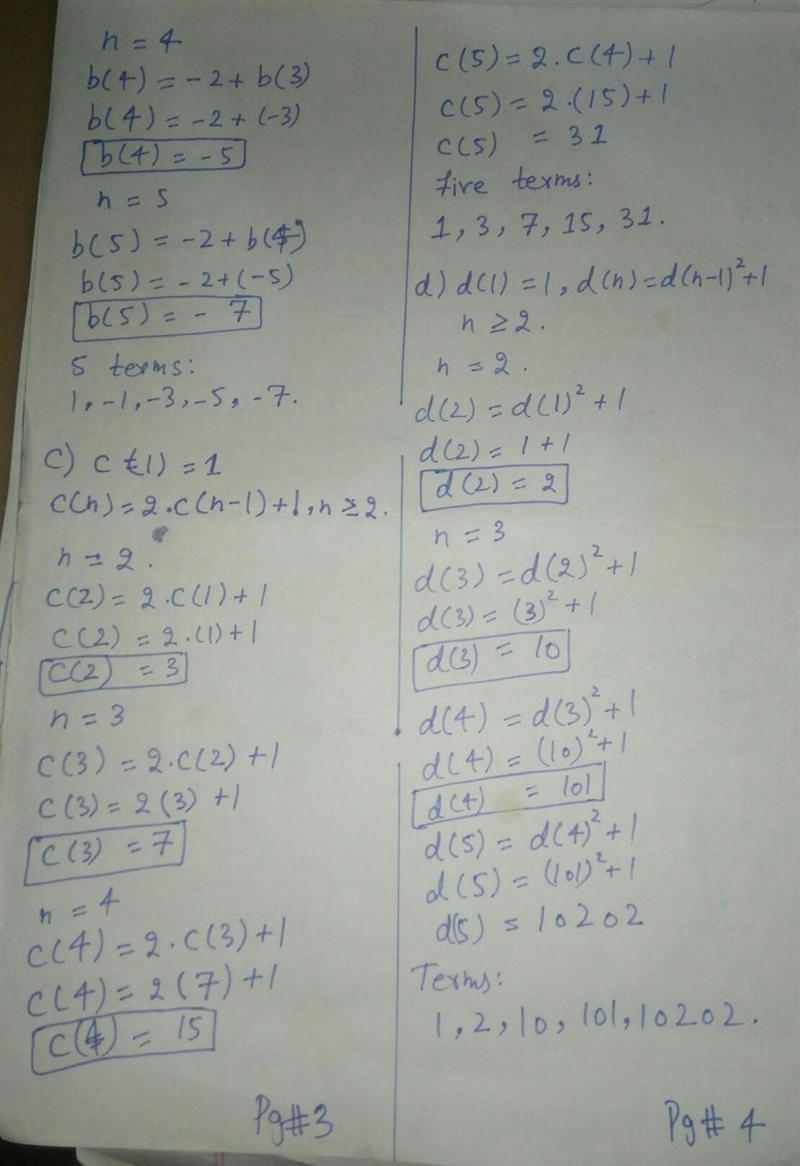 n = 4
b(4) = -2 + b(3)
b(4) = -2 + (-3)
b(4) = -5
n = 5
b(5) = -2 + b(4)
b(5) = -2 + (-5)
b(5) = - 7
5 terms:
1, -1, -3, -5, -7.
C) C (1) = 1
C(n) = 2.C(n-1) + 1, n ≥ 2.
n = 2.
C(2) = 2.C(1) + 1
C(2) = 2.(1) + 1
C(2) = 3
n = 3
C(3) = 2.C(2) + 1
C(3) = 2(3) + 1
C(3) = 7
n = 4
C(4) = 2.C(3) + 1
C(4) = 2(7) + 1
C(4) = 15
Pg#3
C(5) = 2.C(4) + 1
C(5) = 2.(15) + 1
C(5) = 31
five terms:
1, 3, 7, 15, 31.
d) d(1) = 1, d(n) = d(n-1)² + 1
n ≥ 2.
n = 2.
d(2) = d(1)² + 1
d(2) = 1 + 1
d(2) = 2
n = 3
d(3) = d(2)² + 1
d(3) = (3)² + 1
d(3) = 10
d(4) = d(3)² + 1
d(4) = (10)² + 1
d(4) = 101
d(5) = d(4)² + 1
d(5) = (101)² + 1
d(5) = 10202
Terms:
1, 2, 10, 101, 10202.
Pg# 4